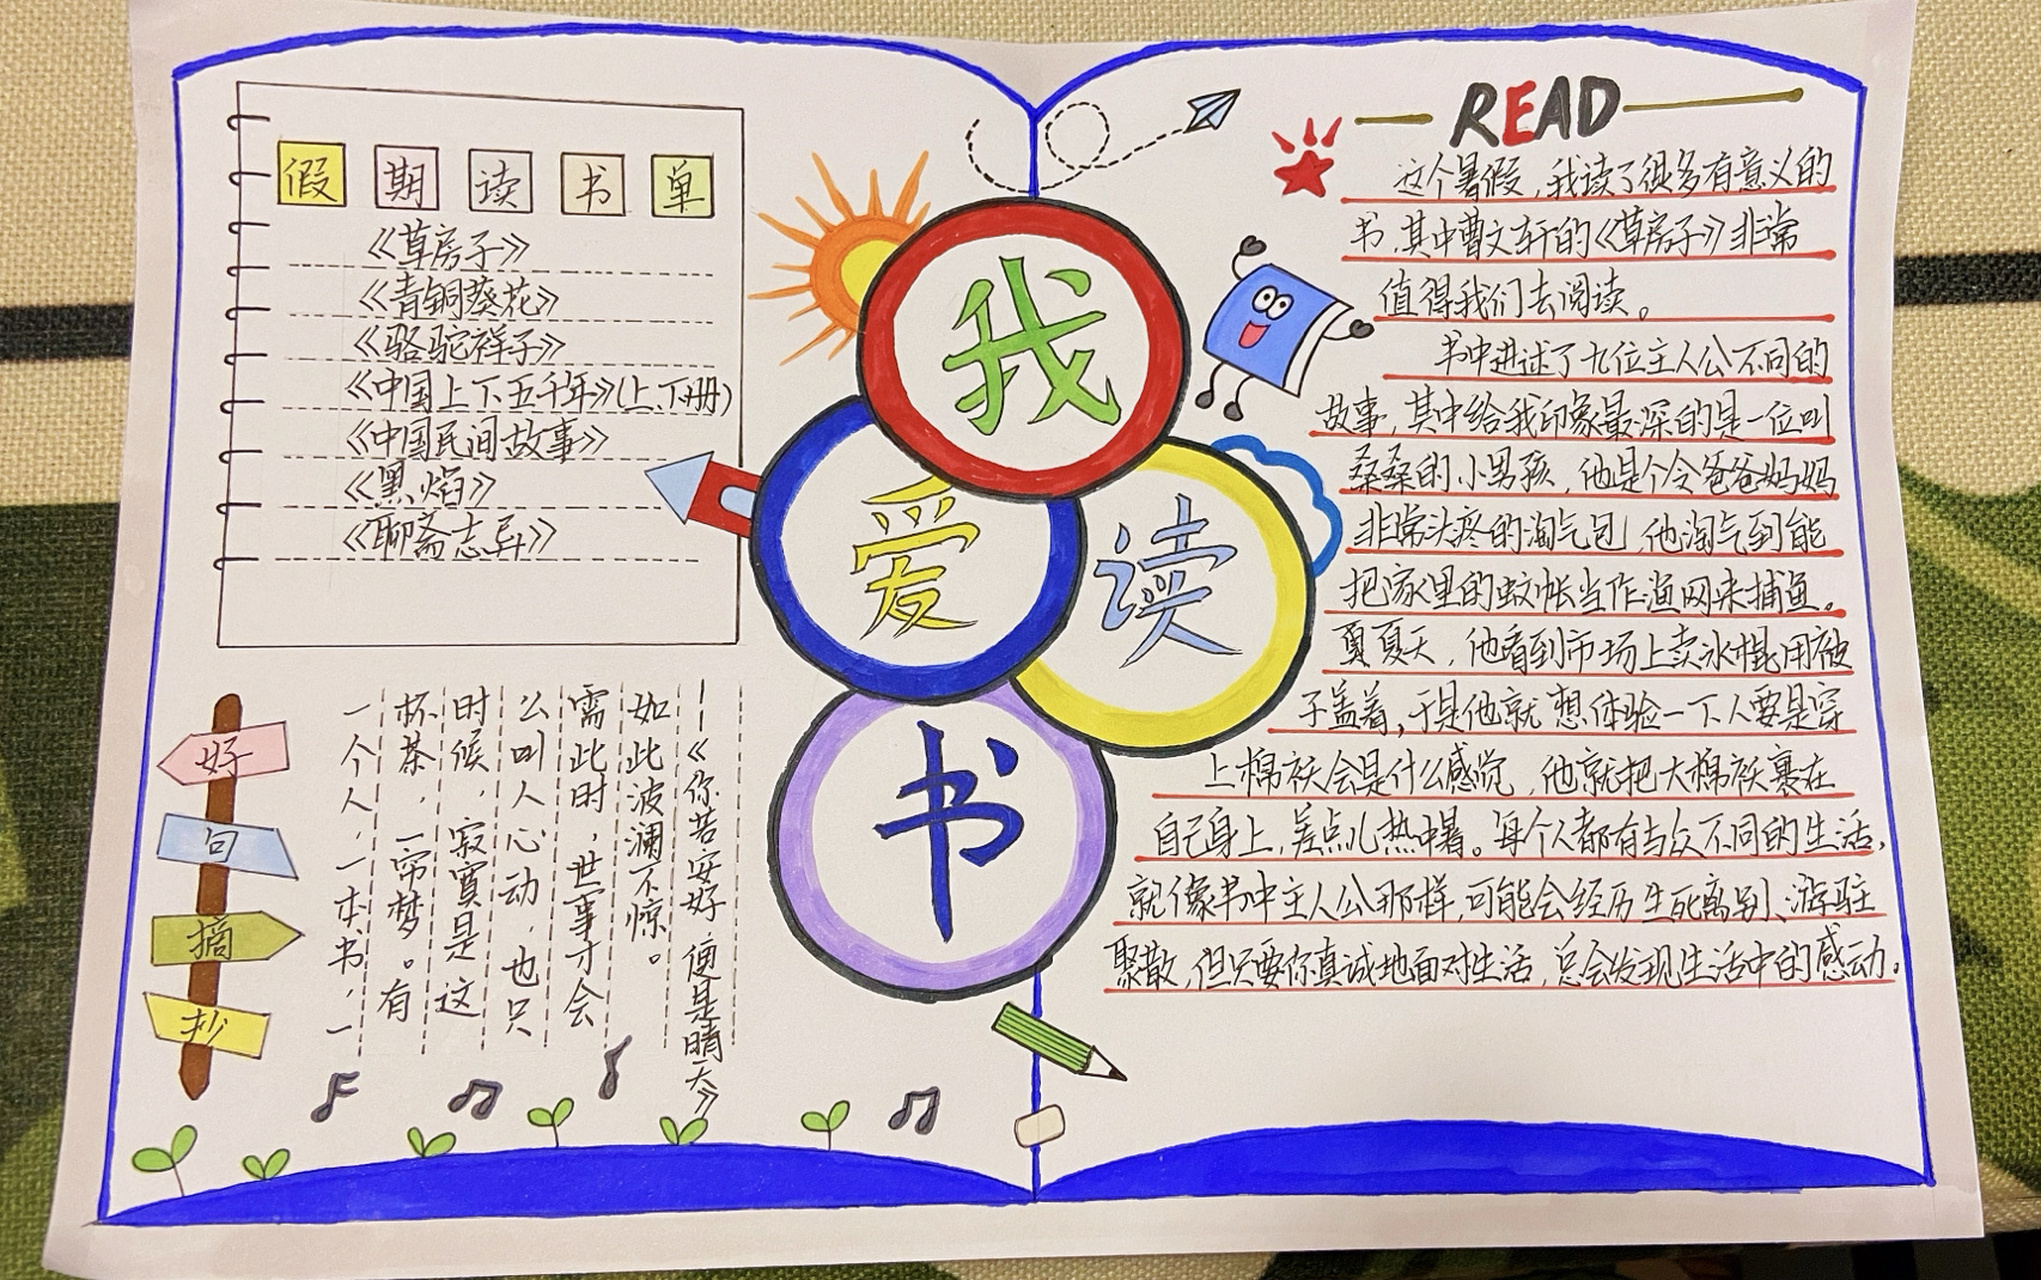 假期读书单
《草房子》
《青铜葵花》
《骆驼祥子》
《中国上下五千年》(上、下册)
《中国民间故事》
《黑焰》
《聊斋志异》
好
句
摘
抄
一个人，一本书，一
杯茶，一帘梦。有
时候，寂寞是这
么叫人心动，也只
需此时，世事才会
如此波澜不惊。
——《你若安好，便是晴天》
我
爱
读
书
READ
这个暑假，我读了很多有意义的
书，其中曹文轩的《草房子》非常
值得我们去阅读。
书中讲述了九位主人公不同的
故事，其中给我印象最深的是一位叫
桑桑的小男孩，他是个令爸爸妈妈
非常头疼的淘气包，他淘气到能
把家里的蚊帐当作渔网来捕鱼。
夏天，他看到市场上卖冰棍用被
子盖着，于是他就想体验一下人要是穿
上棉袄会是什么感觉，他就把大棉袄裹在
自己身上，差点儿热中暑。每个人都有与众不同的生活，
就像书中主人公那样，可能会经历生死离别、游驻
聚散，但只要你真诚地面对生活，总会发现生活中的感动。